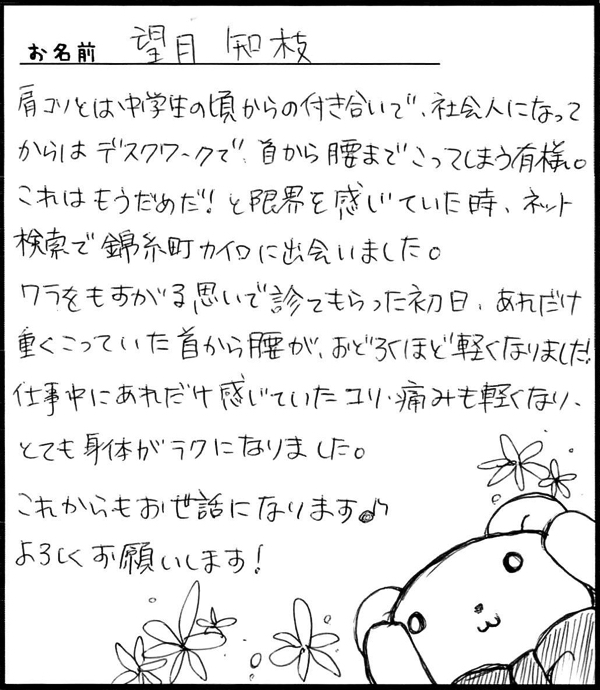 お名前 望月 知枝
肩コリとは中学生の頃からの付き合いで、社会人になって
からはデスクワークで首から腰までこってしまう有様。
これはもうだめだ!と限界を感じていた時、ネット
検索で錦糸町カイロに出会いました。
ワラをもすがる思いで診てもらった初日、あれだけ
重くこっていた首から腰が、おどろくほど軽くなりました!
仕事中にあれだけ感じていたコリ・痛みも軽くなり、
とても身体がラクになりました。
これからもお世話になります♪
よろしくお願いします!